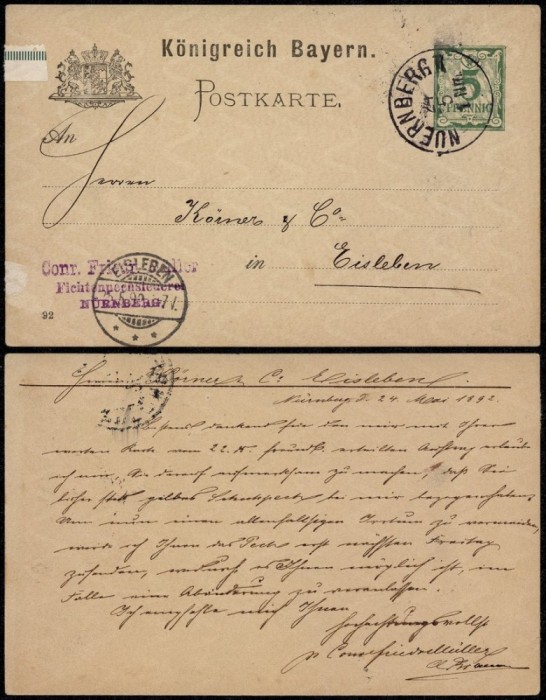 Königreich Bayern.
POSTKARTE.
5
PFENNIG
NUERNBERG
An
Herren
Körner & Co
in Eisleben
Conr. Friedr.
Fichtenpechsiederei
NÜRNBERG.
EISLEBEN
92
Körner & C: Eisleben.
Nürnberg d. 24. Mai 1892.
dankend für den mir mit Ihrer
werten Karte vom 22. ds. freundl. erteilten Auftrag erlaube
ich mir, Sie darauf aufmerksam zu machen, daß Sie
statt gelbes bei mir
Um nun einen allenfallsigen Irrtum zu vermeiden,
werde ich Ihnen das Pech erst nächsten Freitag
zusenden, wodurch es Ihnen möglich ist, im
Falle eine Abänderung zu veranlassen.
Ich empfehle mich Ihnen
hochachtungsvollst
p Conr Friedr Müller